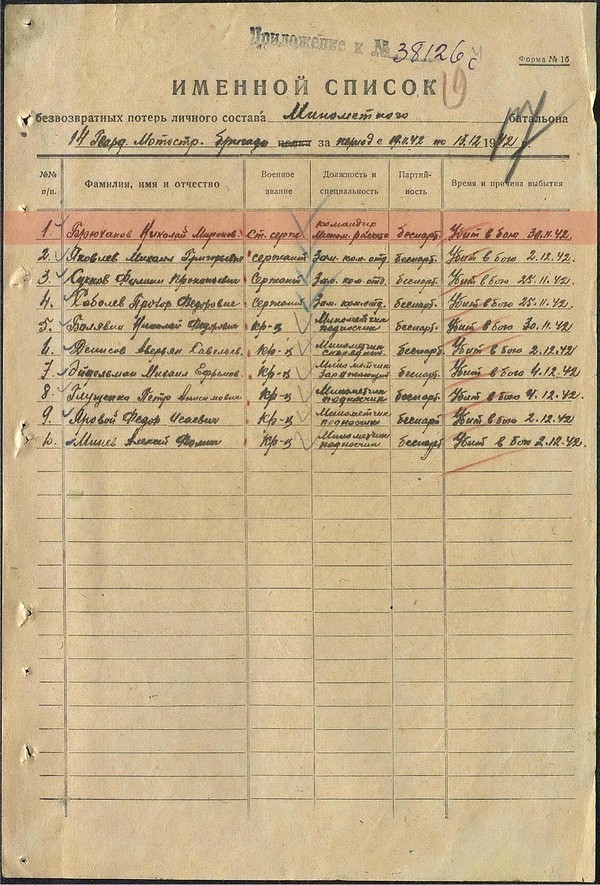 Приложение к № 38126 с
Форма № 16
ИМЕННОЙ СПИСОК
19
безвозвратных потерь личного состава Минометного батальона
14 Гвард. Мотостр. бригады полка за период с 19.11.42 по 15.12 1942 г.
17
№№ п/п. Фамилия, имя и отчество Военное звание Должность и специальность Партийность Время и причина выбытия
1. Николай Миронов. Ст. серж. командир беспарт. Убит в бою 30.11.42.
2. Яковлев Михаил Григорьевич сержант Зам. ком. отд. беспарт. Убит в бою 2.12.42
3. Сучков Филипп Прокопьевич Сержант Зам. ком. отд. беспарт. Убит в бою 25.11.42
4. Соболев Прохор Федорович Сержант Зам. ком. отд. беспарт. Убит в бою 25.11.42
5. Балявин Николай Федорович кр-ц Минометчик подносчик беспарт. Убит в бою 30.11.42
6. Денисов Аверьян Савельев. кр-ц Минометчик беспарт. Убит в бою 2.12.42
7. Эйдельман Михаил Ефремов. кр-ц Минометчик заряжающий беспарт. Убит в бою 4.12.42
8. Глущенко Петр Анисимович кр-ц Минометчик подносчик беспарт. Убит в бою 4.12.42
9. Яровой Федор Исаевич кр-ц Минометчик подносчик беспарт. Убит в бою 2.12.42
10. Алексей Фомич кр-ц Минометчик подносчик беспарт Убит в бою 2.12.42.